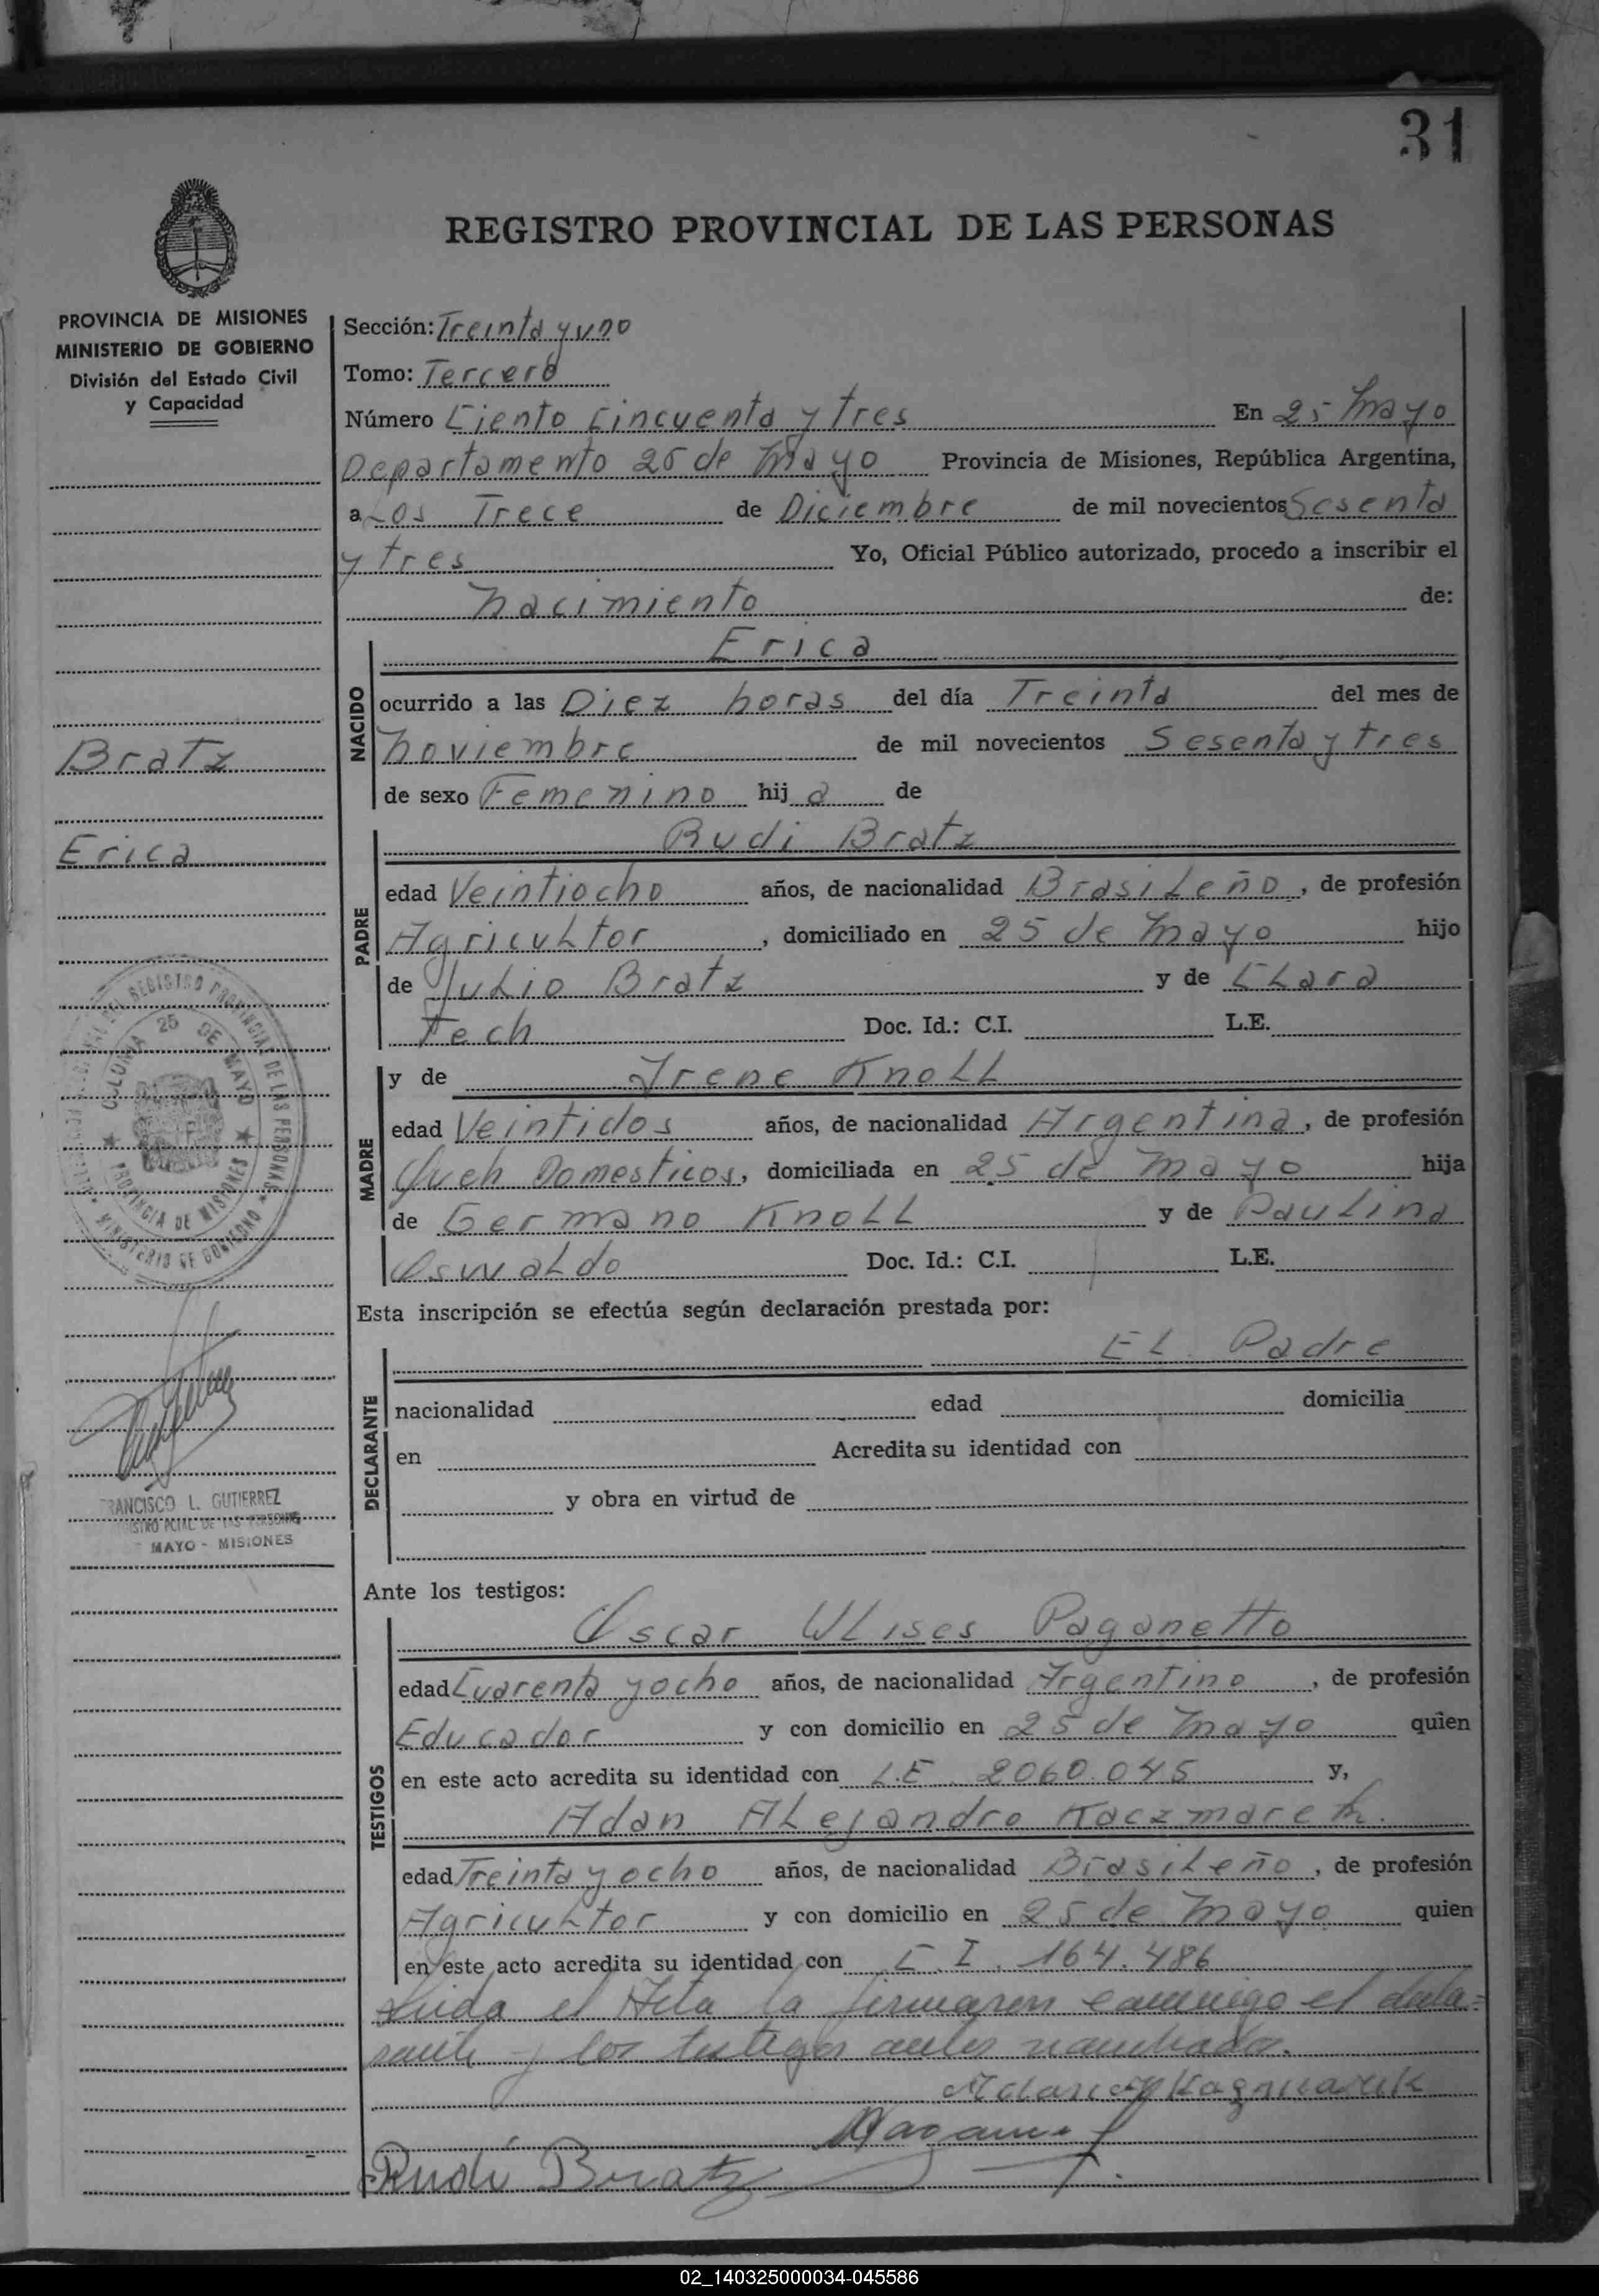 31
REGISTRO PROVINCIAL DE LAS PERSONAS
PROVINCIA DE MISIONES
MINISTERIO DE GOBIERNO
División del Estado Civil
y Capacidad
Bratz
Erica
REGISTRO PROVINCIAL DE LAS PERSONAS
COLONIA 25 DE MAYO
PROVINCIA DE MISIONES
MINISTERIO DE GOBIERNO
FRANCISCO L. GUTIERREZ
PCIAL. DE LAS PERSONAS
MAYO - MISIONES
Sección: Treinta y uno
Tomo: Tercero
Número Ciento Cincuenta y tres En 25 Mayo
Departamento 25 de Mayo Provincia de Misiones, República Argentina,
a Los Trece de Diciembre de mil novecientos Sesenta
y tres Yo, Oficial Público autorizado, procedo a inscribir el
Nacimiento de:
Erica
NACIDO
ocurrido a las Diez horas del día Treinta del mes de
Noviembre de mil novecientos Sesenta y tres
de sexo Femenino hija de
Rudi Bratz
PADRE
edad Veintiocho años, de nacionalidad Brasileño, de profesión
Agricultor, domiciliado en 25 de Mayo hijo
de Julio Bratz y de Clara
Tech Doc. Id.: C.I. L.E.
MADRE
y de Irene Knoll
edad Veintidos años, de nacionalidad Argentina, de profesión
Queh Domesticos, domiciliada en 25 de Mayo hija
de Germano Knoll y de Paulina
Oswaldo Doc. Id.: C.I. L.E.
Esta inscripción se efectúa según declaración prestada por:
El Padre
DECLARANTE
nacionalidad edad domicilia
en Acredita su identidad con
y obra en virtud de
Ante los testigos:
Oscar Ulises Paganetto
TESTIGOS
edad Cuarenta y ocho años, de nacionalidad Argentino, de profesión
Educador y con domicilio en 25 de Mayo quien
en este acto acredita su identidad con L.E. 2060.045 y,
Adan Alejandro Kaczmarek.
edad Treinta y ocho años, de nacionalidad Brasileño, de profesión
Agricultor y con domicilio en 25 de Mayo quien
en este acto acredita su identidad con C.I. 164.486
Leida el Acta la firmaron conmigo el decla=
rante y los testigos antes nombrados.
Rudi Bratz
02_140325000034-045586